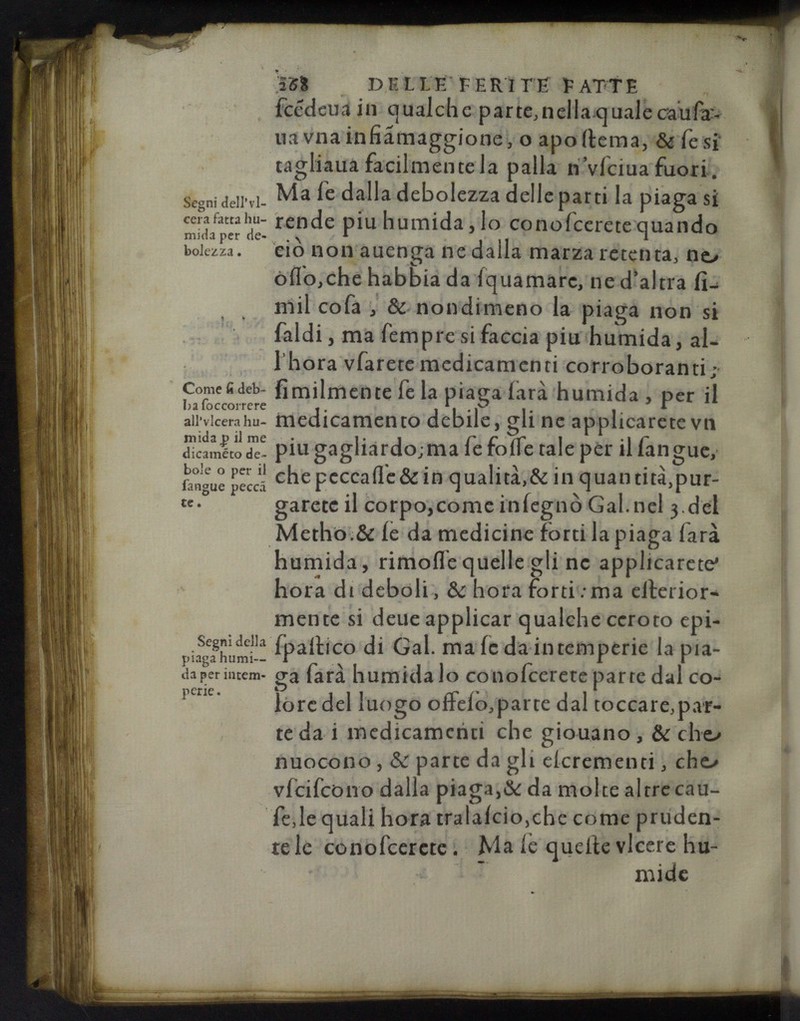 268 DELLE FERITE FATTE
ſcẽdeua in qualche parte, nella quale cauſa-
ua vna infiãmaggione, o apoſtema, & ſe si
tagliaua facilmente la palla n'vſciua fuori.
Ma ſe dalla debolezza delle parti la piaga si
rende piu humida, lo conoſcerete quando
ciò non auenga ne dalla marza retenta, ne
oſſo, che habbia da ſquamare, ne d'altra ſi-
mil coſa, & nondimeno la piaga non si
ſaldi, ma ſempre si faccia piu humida, al-
l'hora vſarete medicamenti corroboranti;
ſimilmente ſe la piaga ſarà humida, per il
medicamento debile, gli ne applicarete vn
piu gagliardo; ma ſe foſſe tale per il ſangue,
che peccaſſe & in qualità, & in quantità, pur-
garete il corpo, come inſegnò Gal. nel 3. del
Metho. & ſe da medicine forti la piaga ſarà
humida, rimoſſe quelle gli ne applicarete
hora di deboli, & hora forti: ma eſterior-
mente si deue applicar qualche ceroto epi-
ſpaſtico di Gal. ma ſe da intemperie la pia-
ga ſarà humida lo conoſcerete parte dal co-
lore del luogo offeſo, parte dal toccare, par-
te da i medicamenti che giouano, & che
nuocono, & parte da gli eſcrementi, che
vſciſcono dalla piaga, & da molte altre cau-
ſe, le quali hora tralaſcio, che come pruden-
te le conoſcerete. Ma ſe queſte vlcere hu-
mide
Segni dell'vl-
cera fatta hu-
mida per de-
bolezza.
Come ſi deb-
ba ſoccorrere
all'vlcera hu-
mida p il me
dicamẽto de-
bole o per il
ſangue peccã
te.
Segni della
piaga humi--
da per intem-
perie.